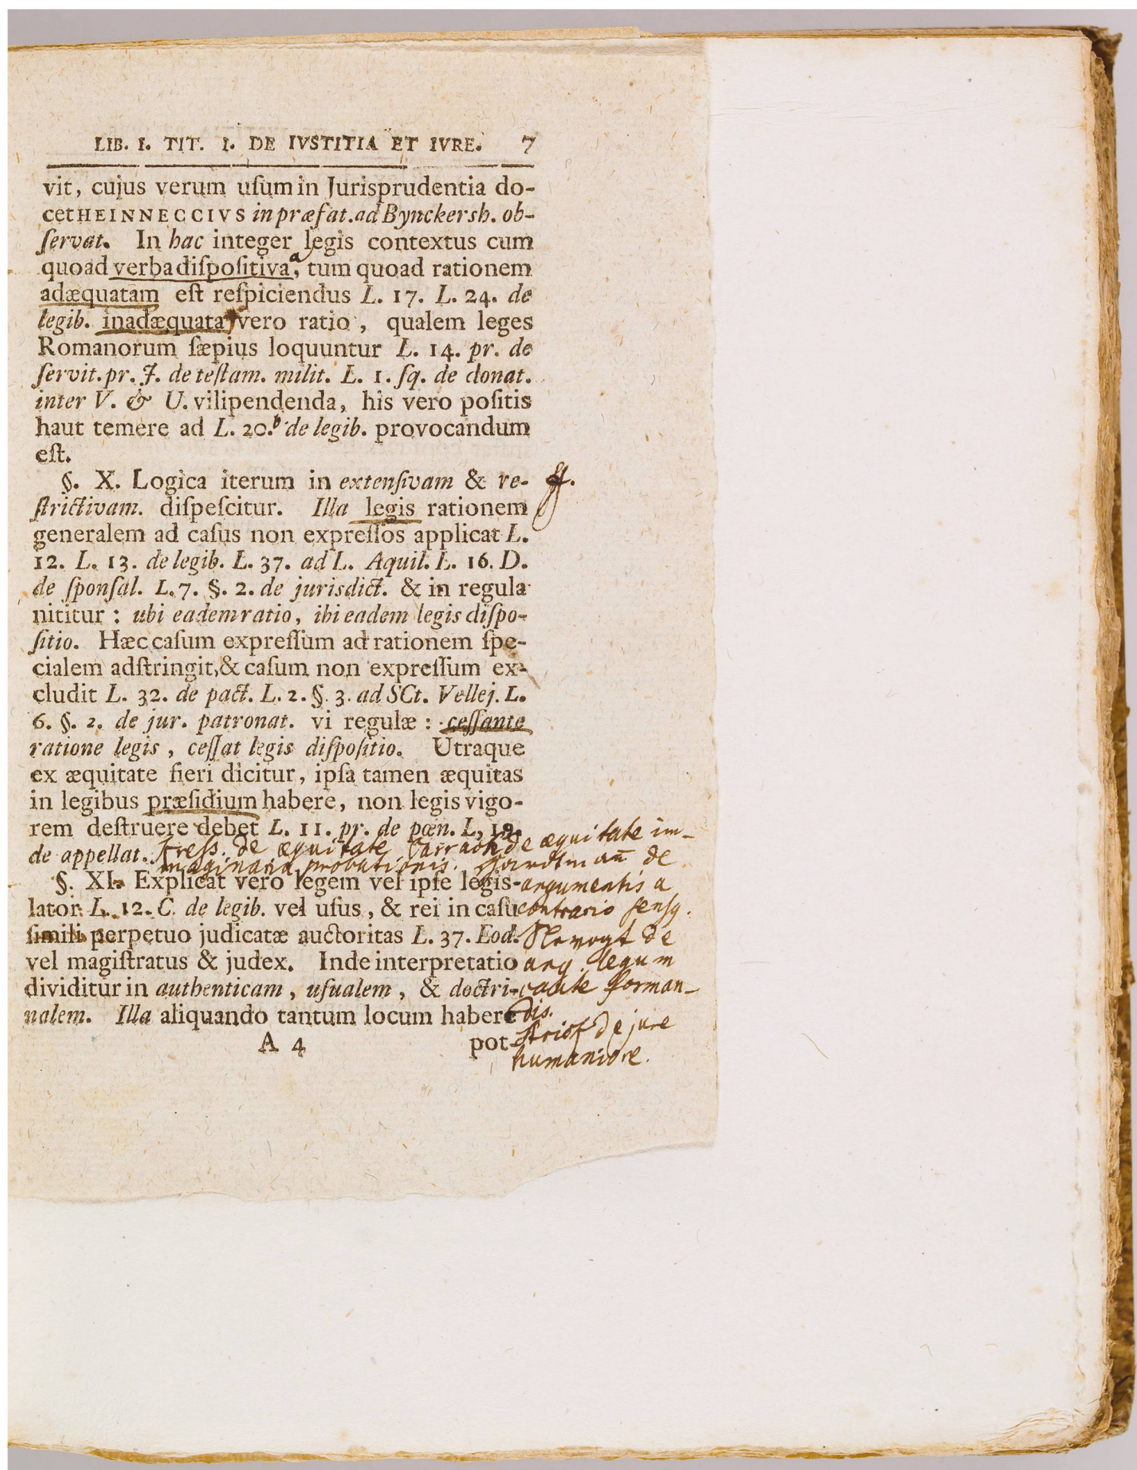 LIB. I. TIT. I. DE IVSTITIA ET IVRE. 7
vit, cujus verum uſum in Jurisprudentia do-
cet HEINNECCIVS in præfat. ad Bynckersh. ob-
ſervat. In hac integer legis contextus cum
quoad verba diſpoſitiva a, tum quoad rationem
adæquatam eſt reſpiciendus L. 17. L. 24. de
legib. inadæquata vero ratio, qualem leges
Romanorum ſæpius loquuntur L. 14. pr. de
ſervit. pr. J. de teſtam. milit. L. 1. ſq. de donat.
inter V. & U. vilipendenda, his vero poſitis
haut temere ad L. 20. b de legib. provocandum
eſt.
§. X. Logica iterum in extenſivam & re-
ſtrictivam. diſpeſcitur. Illa legis rationem
generalem ad caſus non expreſſos applicat L.
12. L. 13. de legib. L. 37. ad L. Aquil. L. 16. D.
de ſponſal. L. 7. §. 2. de jurisdict. & in regula
nititur : ubi eadem ratio, ibi eadem legis diſpo-
ſitio. Hæc caſum expreſſum ad rationem ſpe-
cialem adſtringit, & caſum non expreſſum ex-
cludit L. 32. de pact. L. 2. §. 3. ad SCt. Vellej. L.
6. §. 2. de jur. patronat. vi regulæ : ceſſante
ratione legis, ceſſat legis diſpoſitio. Utraque
ex æquitate fieri dicitur, ipſa tamen æquitas
in legibus præſidium habere, non legis vigo-
rem deſtruere debet L. 11. pr. de pœn. L. 19.
de appellat. de æquitate de æquitate im-
maginaria probationis. de
§. XI. Explicat vero legem vel ipſe legis- argumentis a
lator L. 12. C. de legib. vel uſus, & rei in caſu contrario
ſimili perpetuo judicatæ auctoritas L. 37. Eod. de
vel magiſtratus & judex. Inde interpretatio arg. legum
dividitur in authenticam, uſualem, & doctri- caute forman-
nalem. Illa aliquando tantum locum habere dis.
A 4 pot- de jure
humaniore.